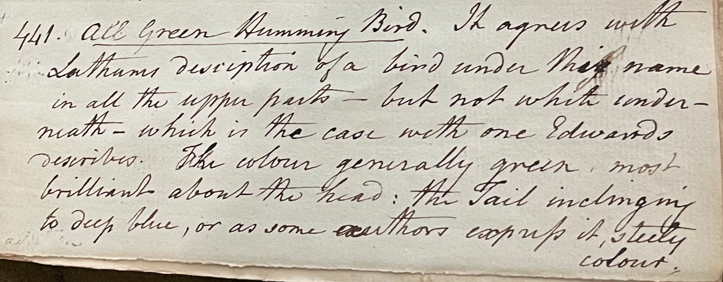 441. All Green Humming Bird. It agrees with
Lathams desciption of a bird under this name
in all the upper parts - but not white under-
neath - which is the case with one Edwards
describes. The colour generally green, most
brilliant about the head: the Tail inclinging
to deep blue, or as some authors express it, steely
colour.